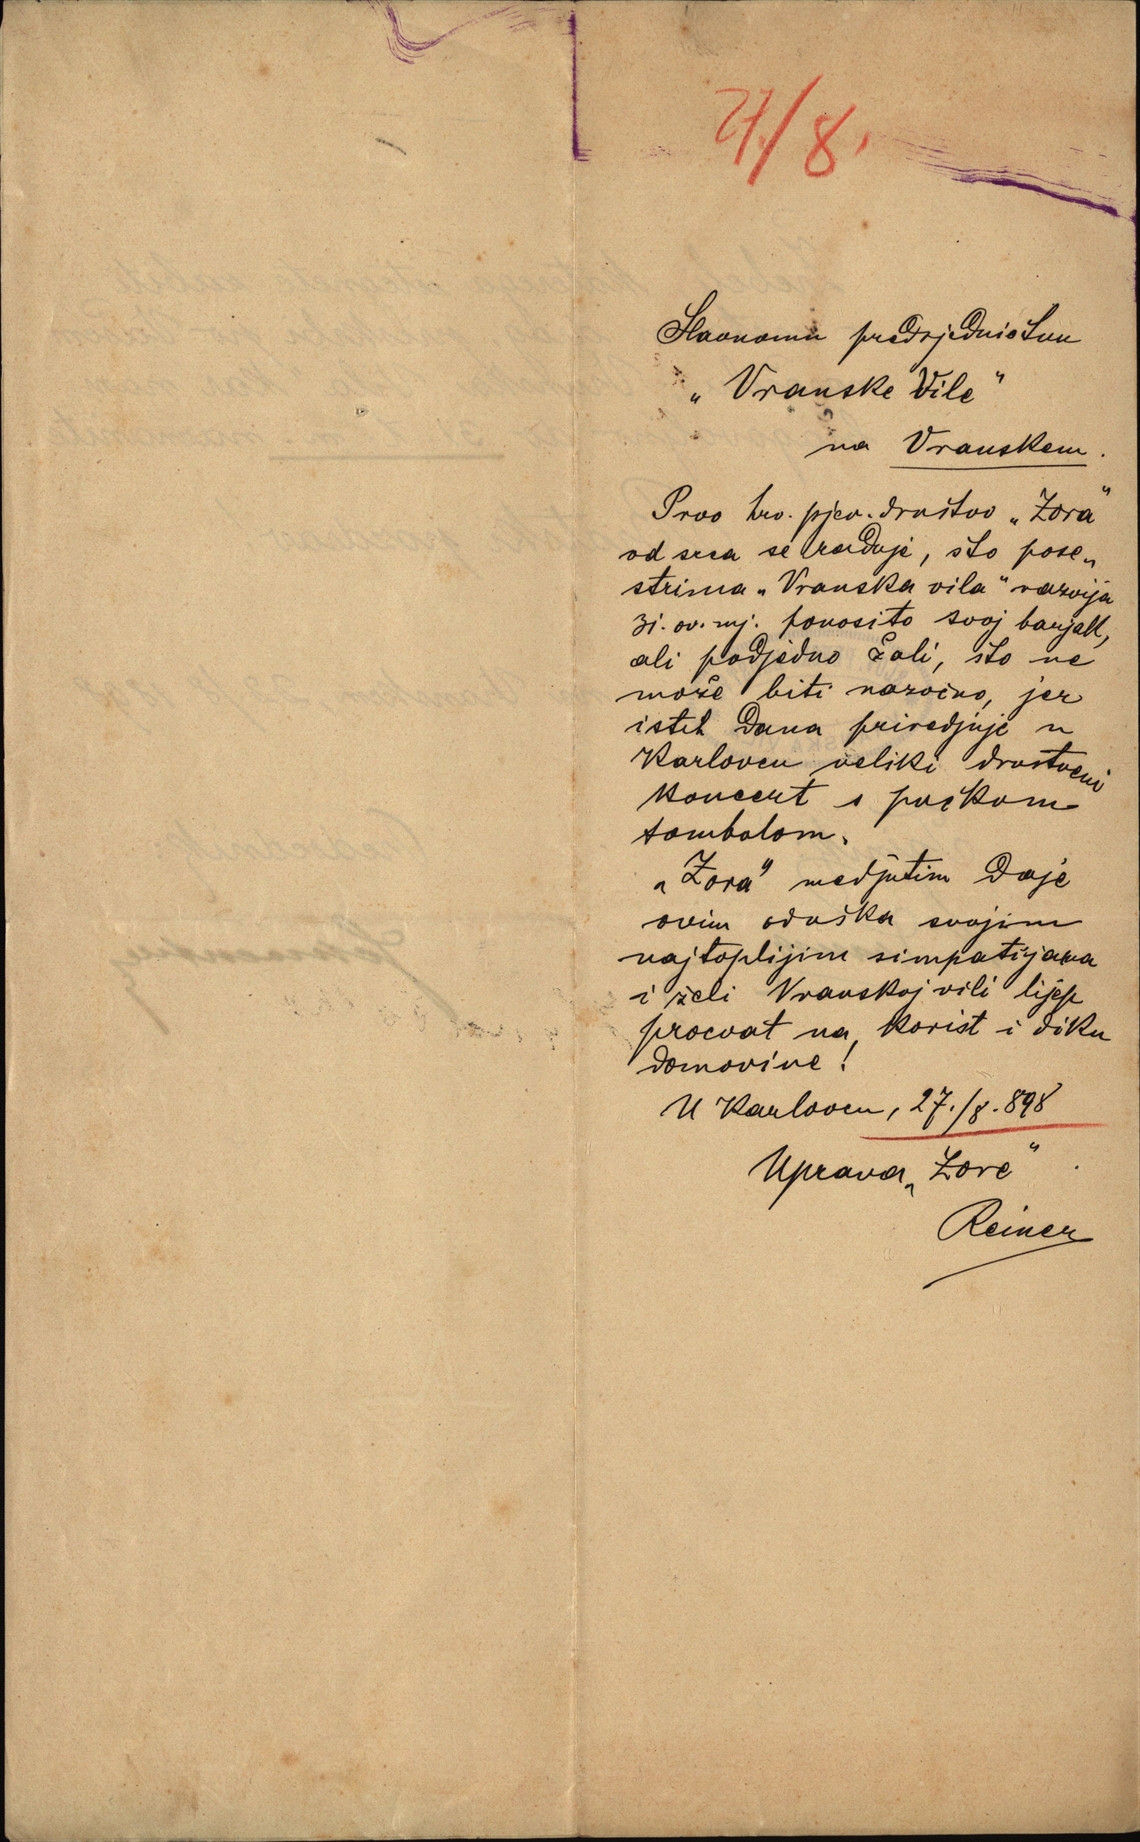 27/8.
Slavnomu predsjedničtvu
„Vranske Vile“
na Vranskem.
Prvo hrv. pjev. društvo „Zora“
od srca se raduje, što pose„
strima „Vranska vila“ razvija
31. ov. mj. ponosito svoj barjak,
ali podjedno žali, što ne
može biti nazočno, jer
isteh dana priredjuje u
Karlovcu veliki društveni
koncert s pučkom
tombolom.
„Zora“ medjutim daje
ovim oduška svojim
najtoplijim simpatijama
i želi Vranskoj vili lijep
procvat na korist i diku
domovine!
U Karlovcu, 27./8.898
Uprava „Zore“
Reiner